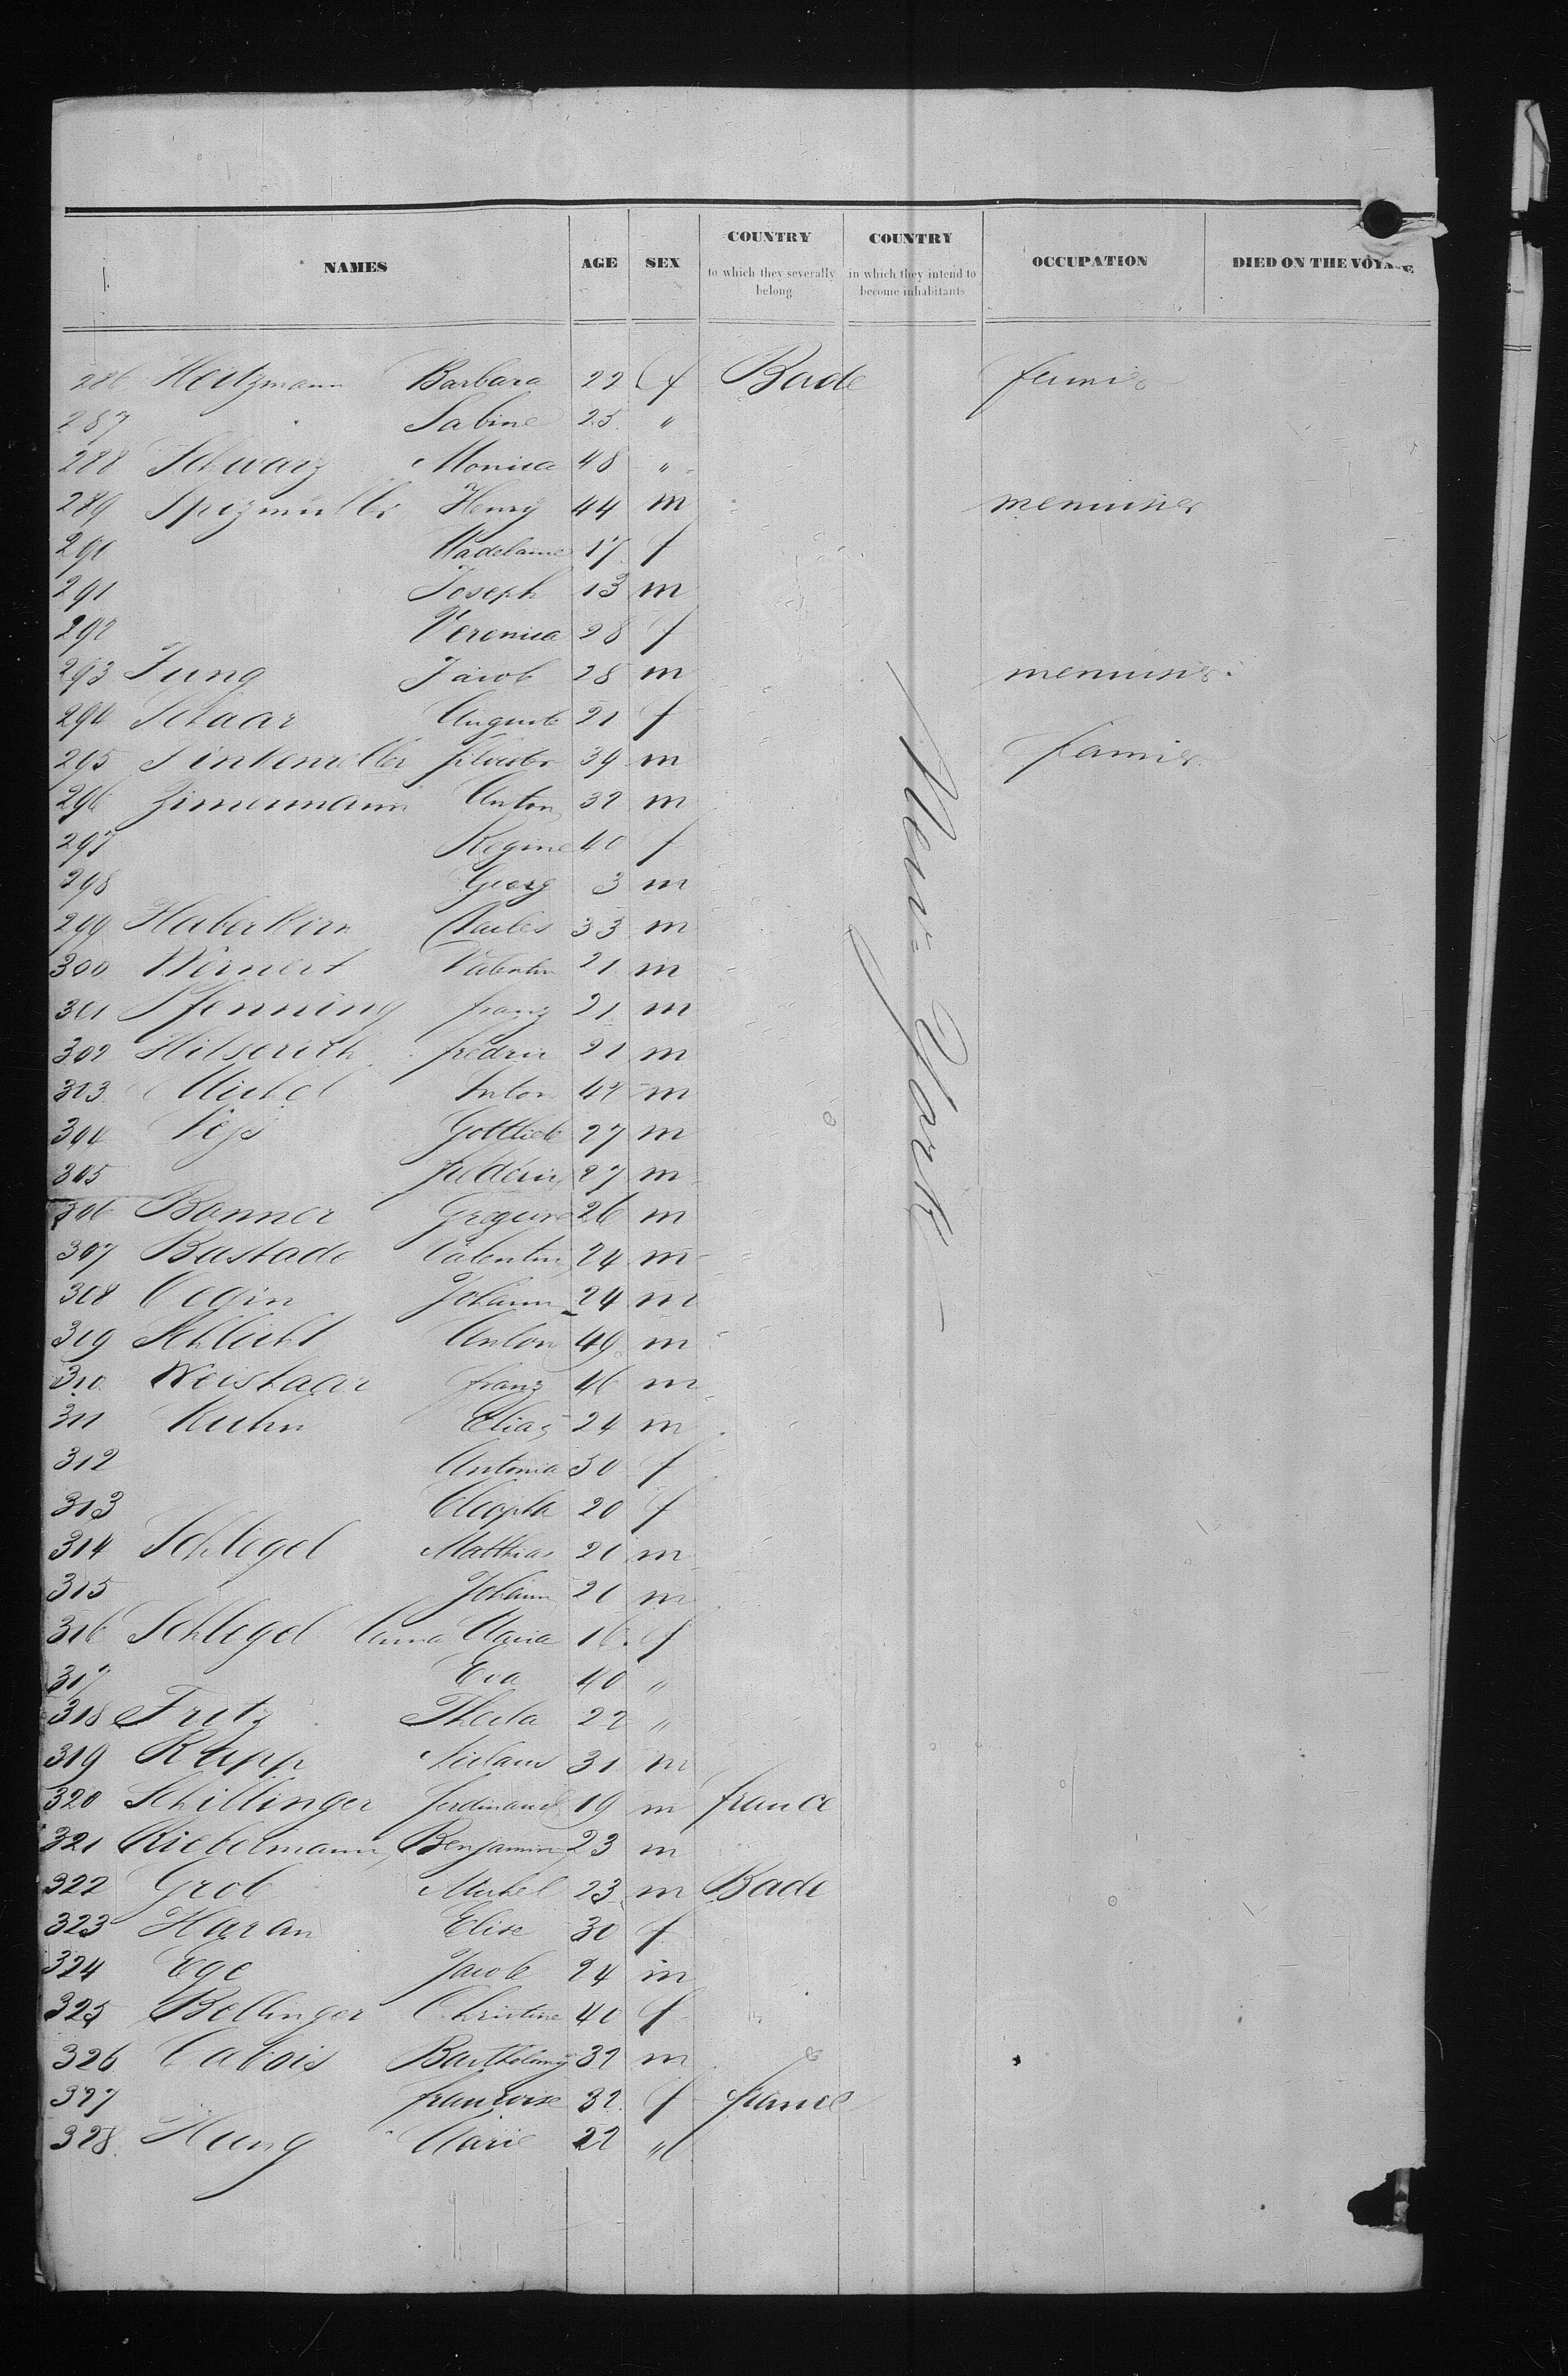 NAMES AGE SEX COUNTRY to which they severally belong COUNTRY in which they intend to become inhabitants OCCUPATION DIED ON THE VOYAGE
286 Heitzmann Barbara 22 f Bade
287 Sabine 25 "
288 Schwarz Monica 48 "
289 Spizmuller Henry 44 m menuisier
290 Madelaine 17 f
291 Joseph 13 m
292 Veronica 28 f
293 Jung Jacob 28 m menuisier
294 Schaar Auguste 21 f
295 39 m
296 Zimermann Anton 32 m
297 Regine 40 f
298 Georg 3 m
299 Haberkirn Charles 33 m
300 Wernert Valentin 21 m
301 Pfenning franz 21 m
302 Hilserich fredric 21 m
303 Michel Anton 42 m
304 Gottlieb 27 m
305 27 m
306 Bonner Gregoire 26 m
307 Bastade Valentin 24 m
308 Johann 24 m
309 Schlecht Anton 49 m
310 Weishaar franz 46 m
311 Kuhn Elias 24 m
312 Antonia 30 f
313 20 f
314 Schlegel Matthias 20 m
315 Johann 21 m
316 Schlegel Anna Maria 16 f
317 Eva 40 "
318 Fritz Thecla 22 "
319 Rupp Niclaus 31 m
320 Schillinger ferdinand 19 m france
321 Riebelmann, Benjamin 23 m
322 Grob Michel 23 m Bade
323 Haran Elise 30 f
324 Ege Jacob 24 m
325 Bellinger Christine 40 f
326 Bartholomy 32 m
327 francoise 32 f france
328 Hung Marie 22 "
New-York